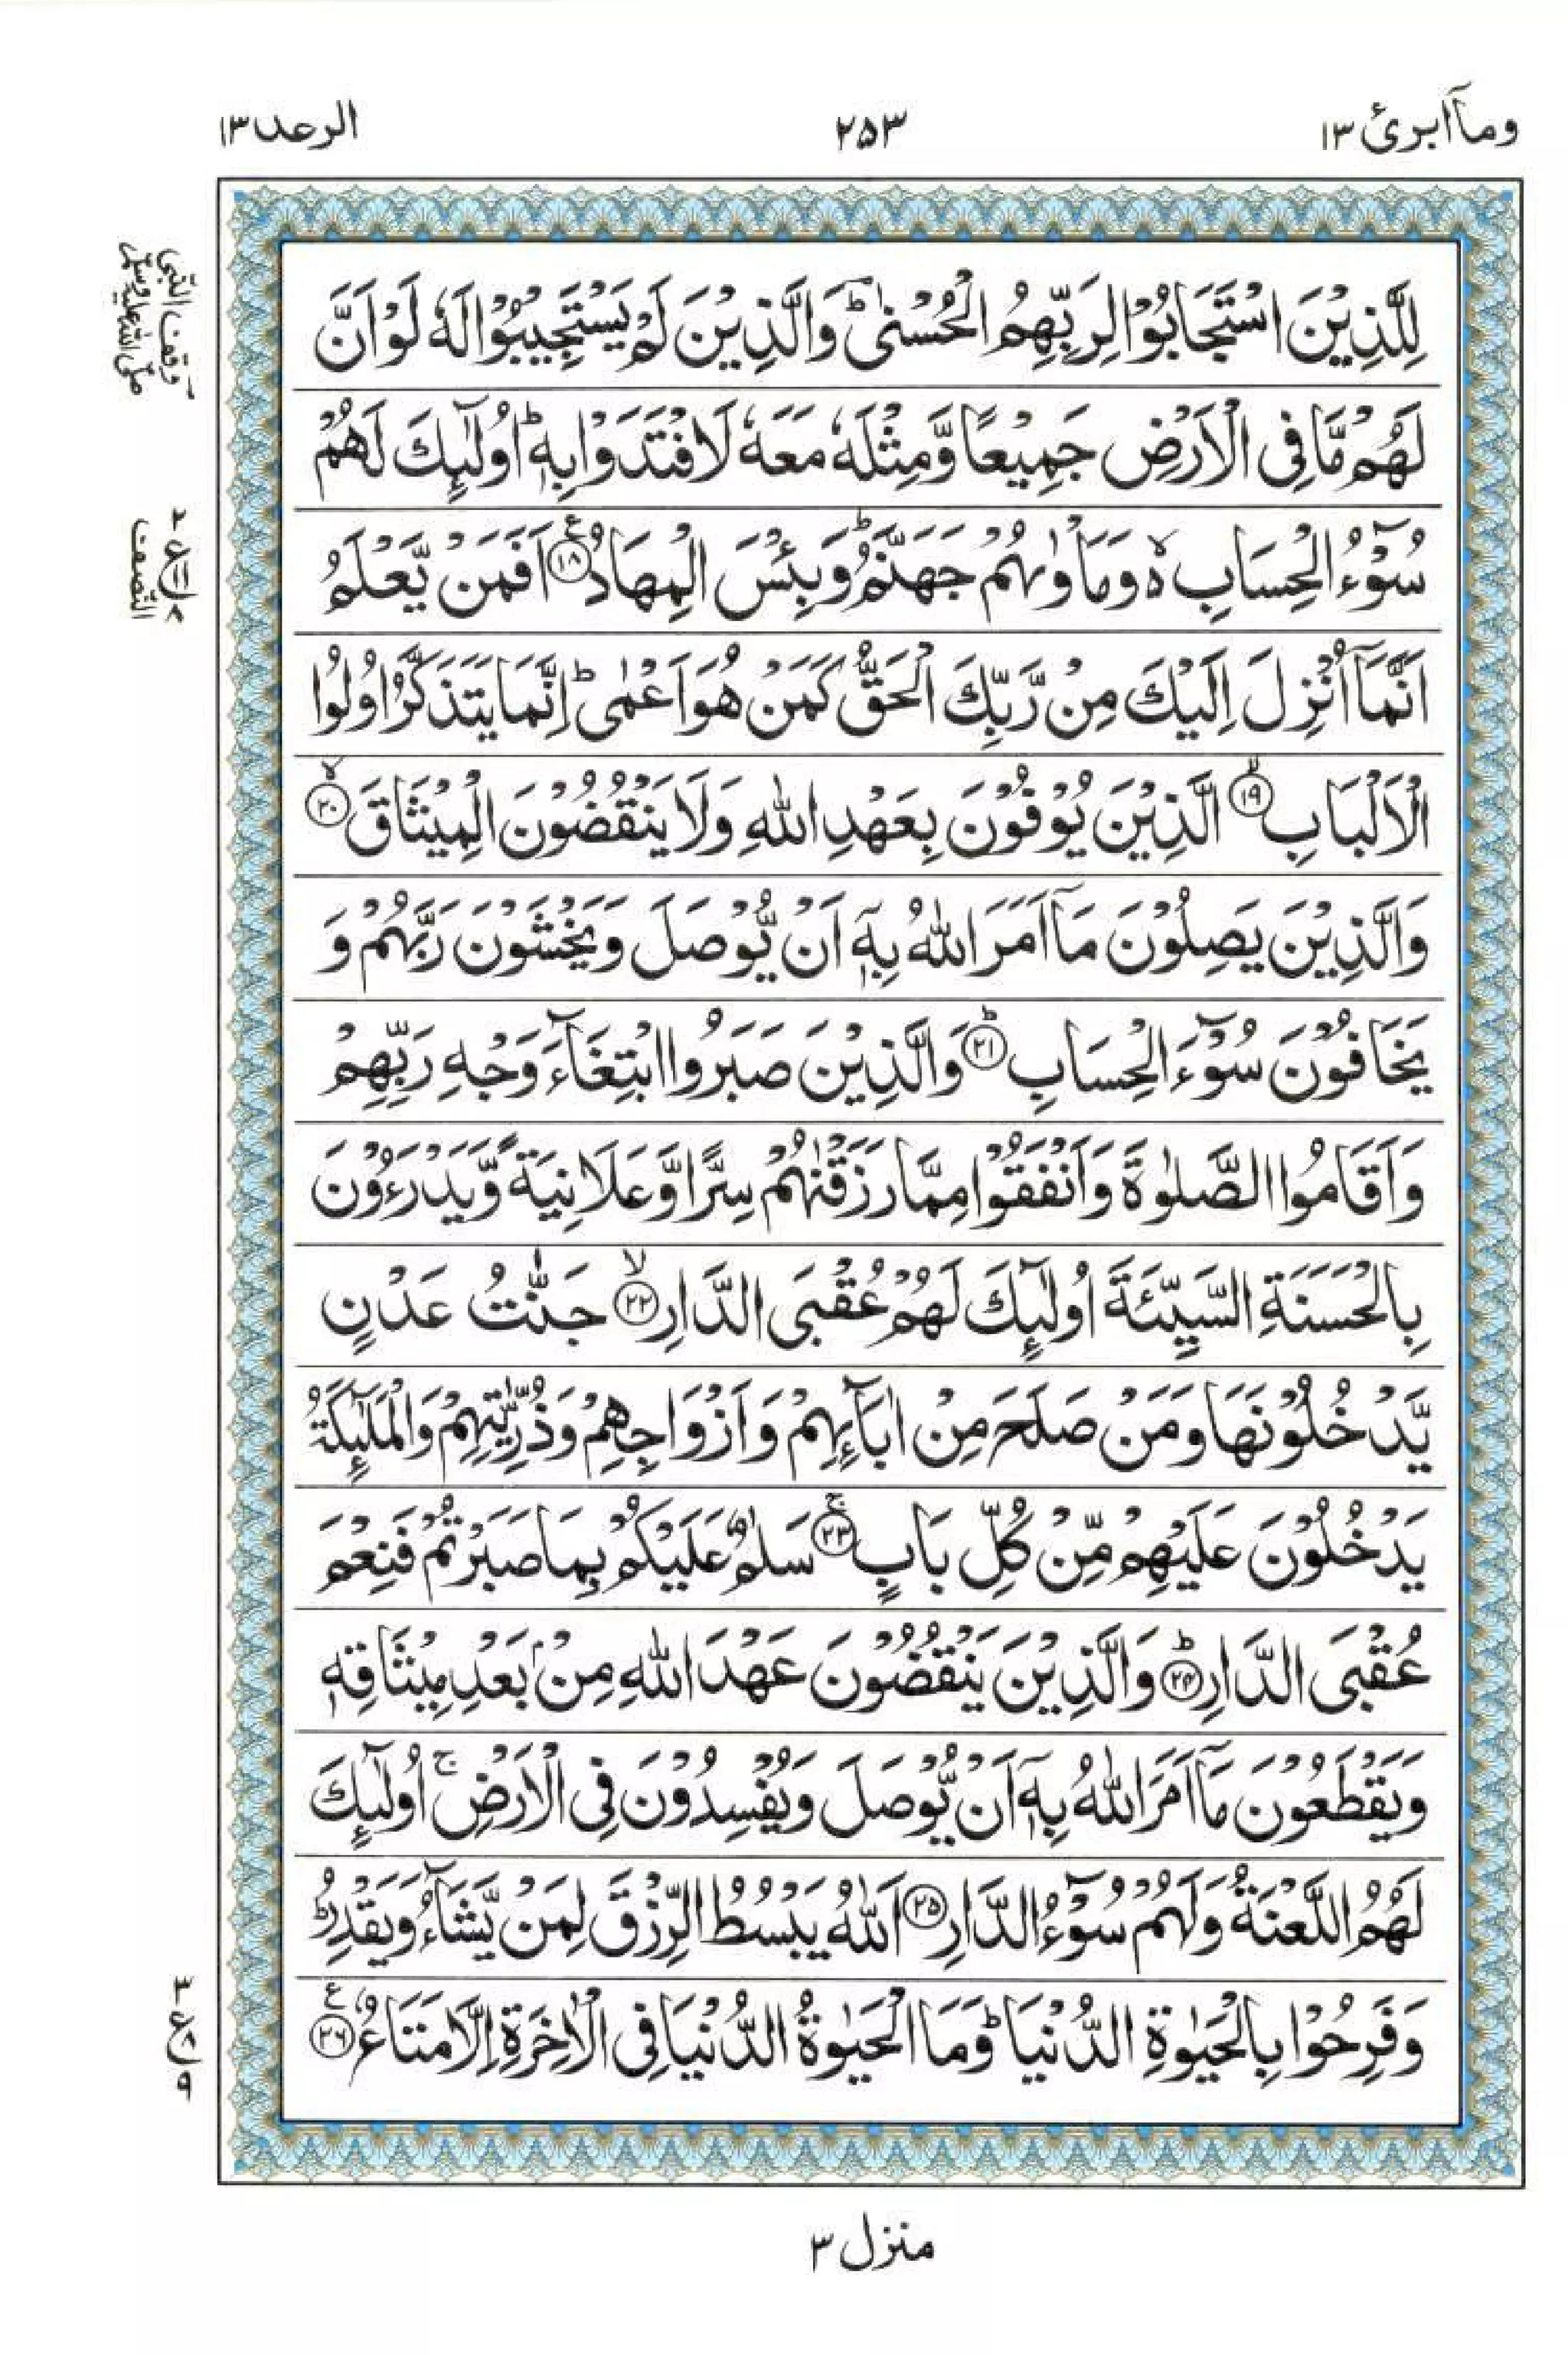 وماۤ ابرئ ١٣
٢٥٣
الرعد ١٣
لِلَّذِيْنَ اسْتَجَابُوْا لِرَبِّهِمُ الْحُسْنٰىؕ وَالَّذِيْنَ لَمْ يَسْتَجِيْبُوْا لَهٗ لَوْ اَنَّ
لَهُمْ مَّا فِى الْاَرْضِ جَمِيْعًا وَّمِثْلَهٗ مَعَهٗ لَافْتَدَوْا بِهٖؕ اُولٰٓئِكَ لَهُمْ
سُوْٓءُ الْحِسَابِ ۙ۬ وَمَاْوٰىهُمْ جَهَنَّمُؕ وَبِئْسَ الْمِهَادُ ﴿١٨﴾ اَفَمَنْ يَّعْلَمُ
اَنَّمَاۤ اُنْزِلَ اِلَيْكَ مِنْ رَّبِّكَ الْحَقُّ كَمَنْ هُوَ اَعْمٰىؕ اِنَّمَا يَتَذَكَّرُ اُولُوا
الْاَلْبَابِ ﴿١٩﴾ الَّذِيْنَ يُوْفُوْنَ بِعَهْدِ اللّٰهِ وَلَا يَنْقُضُوْنَ الْمِيْثَاقَ ﴿٢٠﴾
وَالَّذِيْنَ يَصِلُوْنَ مَاۤ اَمَرَ اللّٰهُ بِهٖۤ اَنْ يُّوْصَلَ وَيَخْشَوْنَ رَبَّهُمْ وَ
يَخَافُوْنَ سُوْٓءَ الْحِسَابِ ﴿٢١﴾ؕ وَالَّذِيْنَ صَبَرُوا ابْتِغَآءَ وَجْهِ رَبِّهِمْ
وَاَقَامُوا الصَّلٰوةَ وَاَنْفَقُوْا مِمَّا رَزَقْنٰهُمْ سِرًّا وَّعَلَانِيَةً وَّيَدْرَءُوْنَ
بِالْحَسَنَةِ السَّيِّئَةَ اُولٰٓئِكَ لَهُمْ عُقْبَى الدَّارِ ﴿٢٢﴾ۙ جَنّٰتُ عَدْنٍ
يَّدْخُلُوْنَهَا وَمَنْ صَلَحَ مِنْ اٰبَآئِهِمْ وَاَزْوَاجِهِمْ وَذُرِّيّٰتِهِمْ وَالْمَلٰٓئِكَةُ
يَدْخُلُوْنَ عَلَيْهِمْ مِّنْ كُلِّ بَابٍ ﴿٢٣﴾ۚ سَلٰمٌ عَلَيْكُمْ بِمَا صَبَرْتُمْ فَنِعْمَ
عُقْبَى الدَّارِ ﴿٢٤﴾ؕ وَالَّذِيْنَ يَنْقُضُوْنَ عَهْدَ اللّٰهِ مِنْۢ بَعْدِ مِيْثَاقِهٖ
وَيَقْطَعُوْنَ مَاۤ اَمَرَ اللّٰهُ بِهٖۤ اَنْ يُّوْصَلَ وَيُفْسِدُوْنَ فِى الْاَرْضِۚ اُولٰٓئِكَ
لَهُمُ اللَّعْنَةُ وَلَهُمْ سُوْٓءُ الدَّارِ ﴿٢٥﴾ اَللّٰهُ يَبْسُطُ الرِّزْقَ لِمَنْ يَّشَآءُ وَيَقْدِرُؕ
وَفَرِحُوْا بِالْحَيٰوةِ الدُّنْيَاؕ وَمَا الْحَيٰوةُ الدُّنْيَا فِى الْاٰخِرَةِ اِلَّا مَتَاعٌ ﴿٢٦﴾
وقف النّبى
صلّى اللّٰه عليه وسلّم
٢
ع
٨
النّصف
٣
ع
٩
منزل ٣